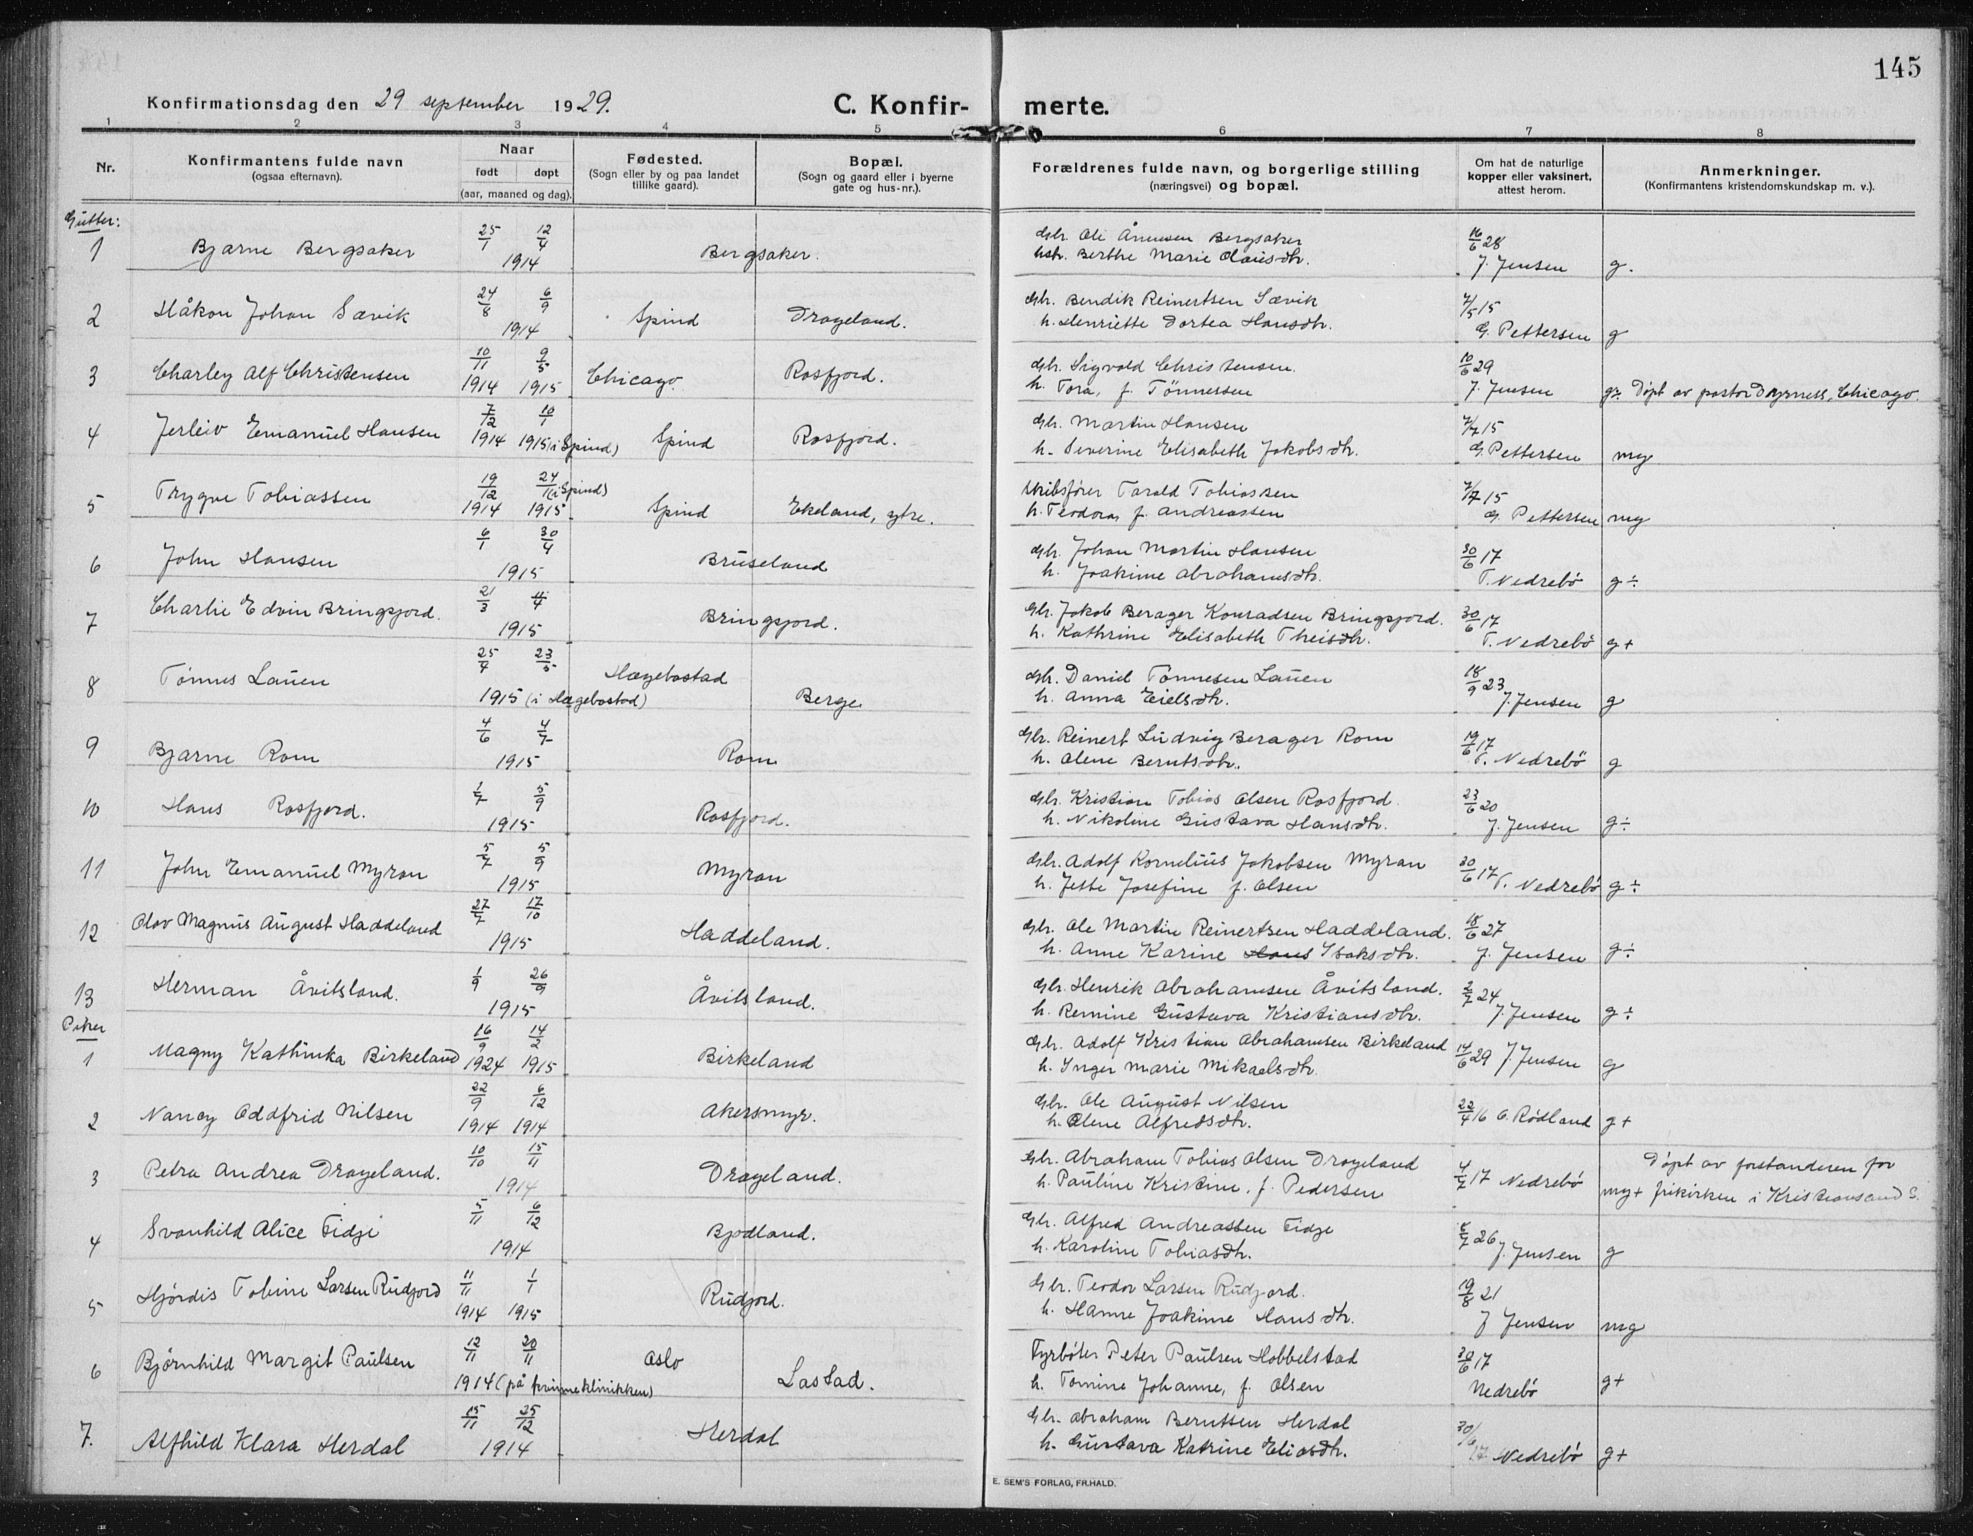 145
Konfirmationsdag den 29 september 1929.
C. Konfir- merte.
1 2 3 4 5 6 7 8
Nr.
Konfirmantens fulde navn
(ogsaa efternavn).
Naar
født døpt
(aar, maaned og dag).
Fødested.
(Sogn eller by og paa landet
tillike gaard).
Bopæl.
(Sogn og gaard eller i byerne
gate og hus-nr.).
Forældrenes fulde navn, og borgerlige stilling
(næringsvei) og bopæl.
Om hat de naturlige
kopper eller vaksinert,
attest herom.
Anmerkninger.
(Konfirmantens kristendomskundskap m. v.).
Gutter:
1 Bjarne Bergsaker 25/1 12/4 1914 Bergsaker.
Gbr. Ole Ånensen Bergsaker
hstr. Berthe Marie Olausdtr.
16/6 28
J. Jensen g.
2 Håkon Johan Sævik 24/8 6/9 1914 Spind Drageland.
Gbr. Bendik Reinertsen Sævik
h. Henriette Dortea Hansdtr.
7/5 15
G. Pettersen g
3 Charley Alf Christensen 10/11 1914 9/5 1915 Chicago. Rosfjord.
Gbr. Sigvald Christensen.
h. Tora, f. Tönnessen
10/6 29
J. Jensen g÷ Döpt av pastor Dayrness, Chicago.
4 Jerleiv Emanuel Hansen 7/12 1914 10/1 1915 (i Spind) Spind Rosfjord.
Gbr. Martin Hansen
h. Severine Elisabeth Jakobsdtr.
7/7 15
G. Pettersen mg
5 Trygve Tobiassen 19/12 1914 24/1 (i Spind) 1915 Spind Ekeland, ytre.
Skibsförer Tarald Tobiassen
h. Teodora, f. Andreassen
7/7 15
G. Pettersen mg
6 John Hansen 6/1 30/4 1915 Bruseland
Gbr. Johan Martin Hansen
h. Joakime Abrahamsdtr.
30/6 17
T. Nedrebö g÷
7 Charlie Edvin Bringsjord. 21/3 11/4 1915 Bringsjord.
Gbr. Jakob Berager Konradsen Bringsjord.
h. Kathrine Elisabeth Theisdtr.
30/6 17
T. Nedrebö g+
8 Tönnes Lauen 25/4 23/5 1915 (i Hægebostad) Hægebostad Berge
Gbr. Daniel Tönnesen Lauen
h. Anna Eielsdtr.
18/9 23
J. Jensen g
9 Bjarne Rom 4/6 4/7 1915 Rom
Gbr. Reinert Ludvig Berager Rom
h. Olene Berntsdtr.
19/6 17
T. Nedrebö g
10 Hans Rosfjord. 1/7 5/9 1915 Rosfjord.
Gbr. Kristian Tobias Olsen Rosfjord.
h. Nikoline Gustava Hansdtr.
23/6 20
J. Jensen g÷
11 John Emanuel Myran 5/7 5/9 1915 Myran
Gbr. Adolf Kornelius Jakobsen Myran
h. Jette Josefine f. Olsen
30/6 17
T. Nedrebö g÷
12 Olav Magnus August Haddeland 27/7 17/10 1915 Haddeland.
Gbr. Ole Martin Reinertsen Haddeland.
h. Anne Karine Hans Isaksdtr.
18/6 27
J. Jensen g÷
13 Herman Åvitsland. 1/9 26/9 1915 Åvitsland.
Gbr. Henrik Abrahamsen Åvitsland.
h. Remine Gustava Kristiansdtr.
2/7 24
J. Jensen g÷
Piker
1 Magny Kathinka Birkeland 16/9 1924 14/2 1915 Birkeland
Gbr. Adolf Kristian Abrahamsen Birkeland
h. Inger Marie Mikaelsdtr.
14/6 29 J. Jensen g
2 Nancy Oddfrid Nilsen 22/9 1914 6/12 1914 Akersmyr.
Gbr. Ole August Nilsen
h. Olene Alfredsdtr.
22/4 16 O. Rödland g+
3 Petra Andrea Drageland. 10/10 15/11 1914 Drageland.
Gbr. Abraham Tobias Olsen Drageland
h. Pauline Kristine, f. Pedersen
4/7 17 Nedrebö mg+ Döpt av forstanderen for
frikirken i Kristiansand S.
4 Svanhild Alice Fidje 5/11 6/12 1914 Bjodland.
Gbr. Alfred Andreassen Fidje
h. Karoline Tobiasdtr.
5/7 26
J. Jensen g
5 Hjördis Tobine Larsen Rudjord 11/11 1914 1/1 1915 Rudjord.
Gbr. Teodor Larsen Rudjord.
h. Hanne Joakime Hansdtr.
19/8 21
J Jensen mg
6 Björnhild Margit Paulsen 12/11 20/11 1914 (på kvinneklinikken) Oslo Lastad.
Fyrböter Peter Paulsen Hobbelstad
h. Tomine Johanne, f. Olsen
30/6 17
Nedrebö g+
7. Alfhild Klara Herdal 15/11 25/12 1914 Herdal
Gbr. Abraham Berntsen Herdal
h. Gustava Katrine Eliasdtr.
30/6 17
Nedrebö g+
E. SEM'S FORLAG, FR.HALD.